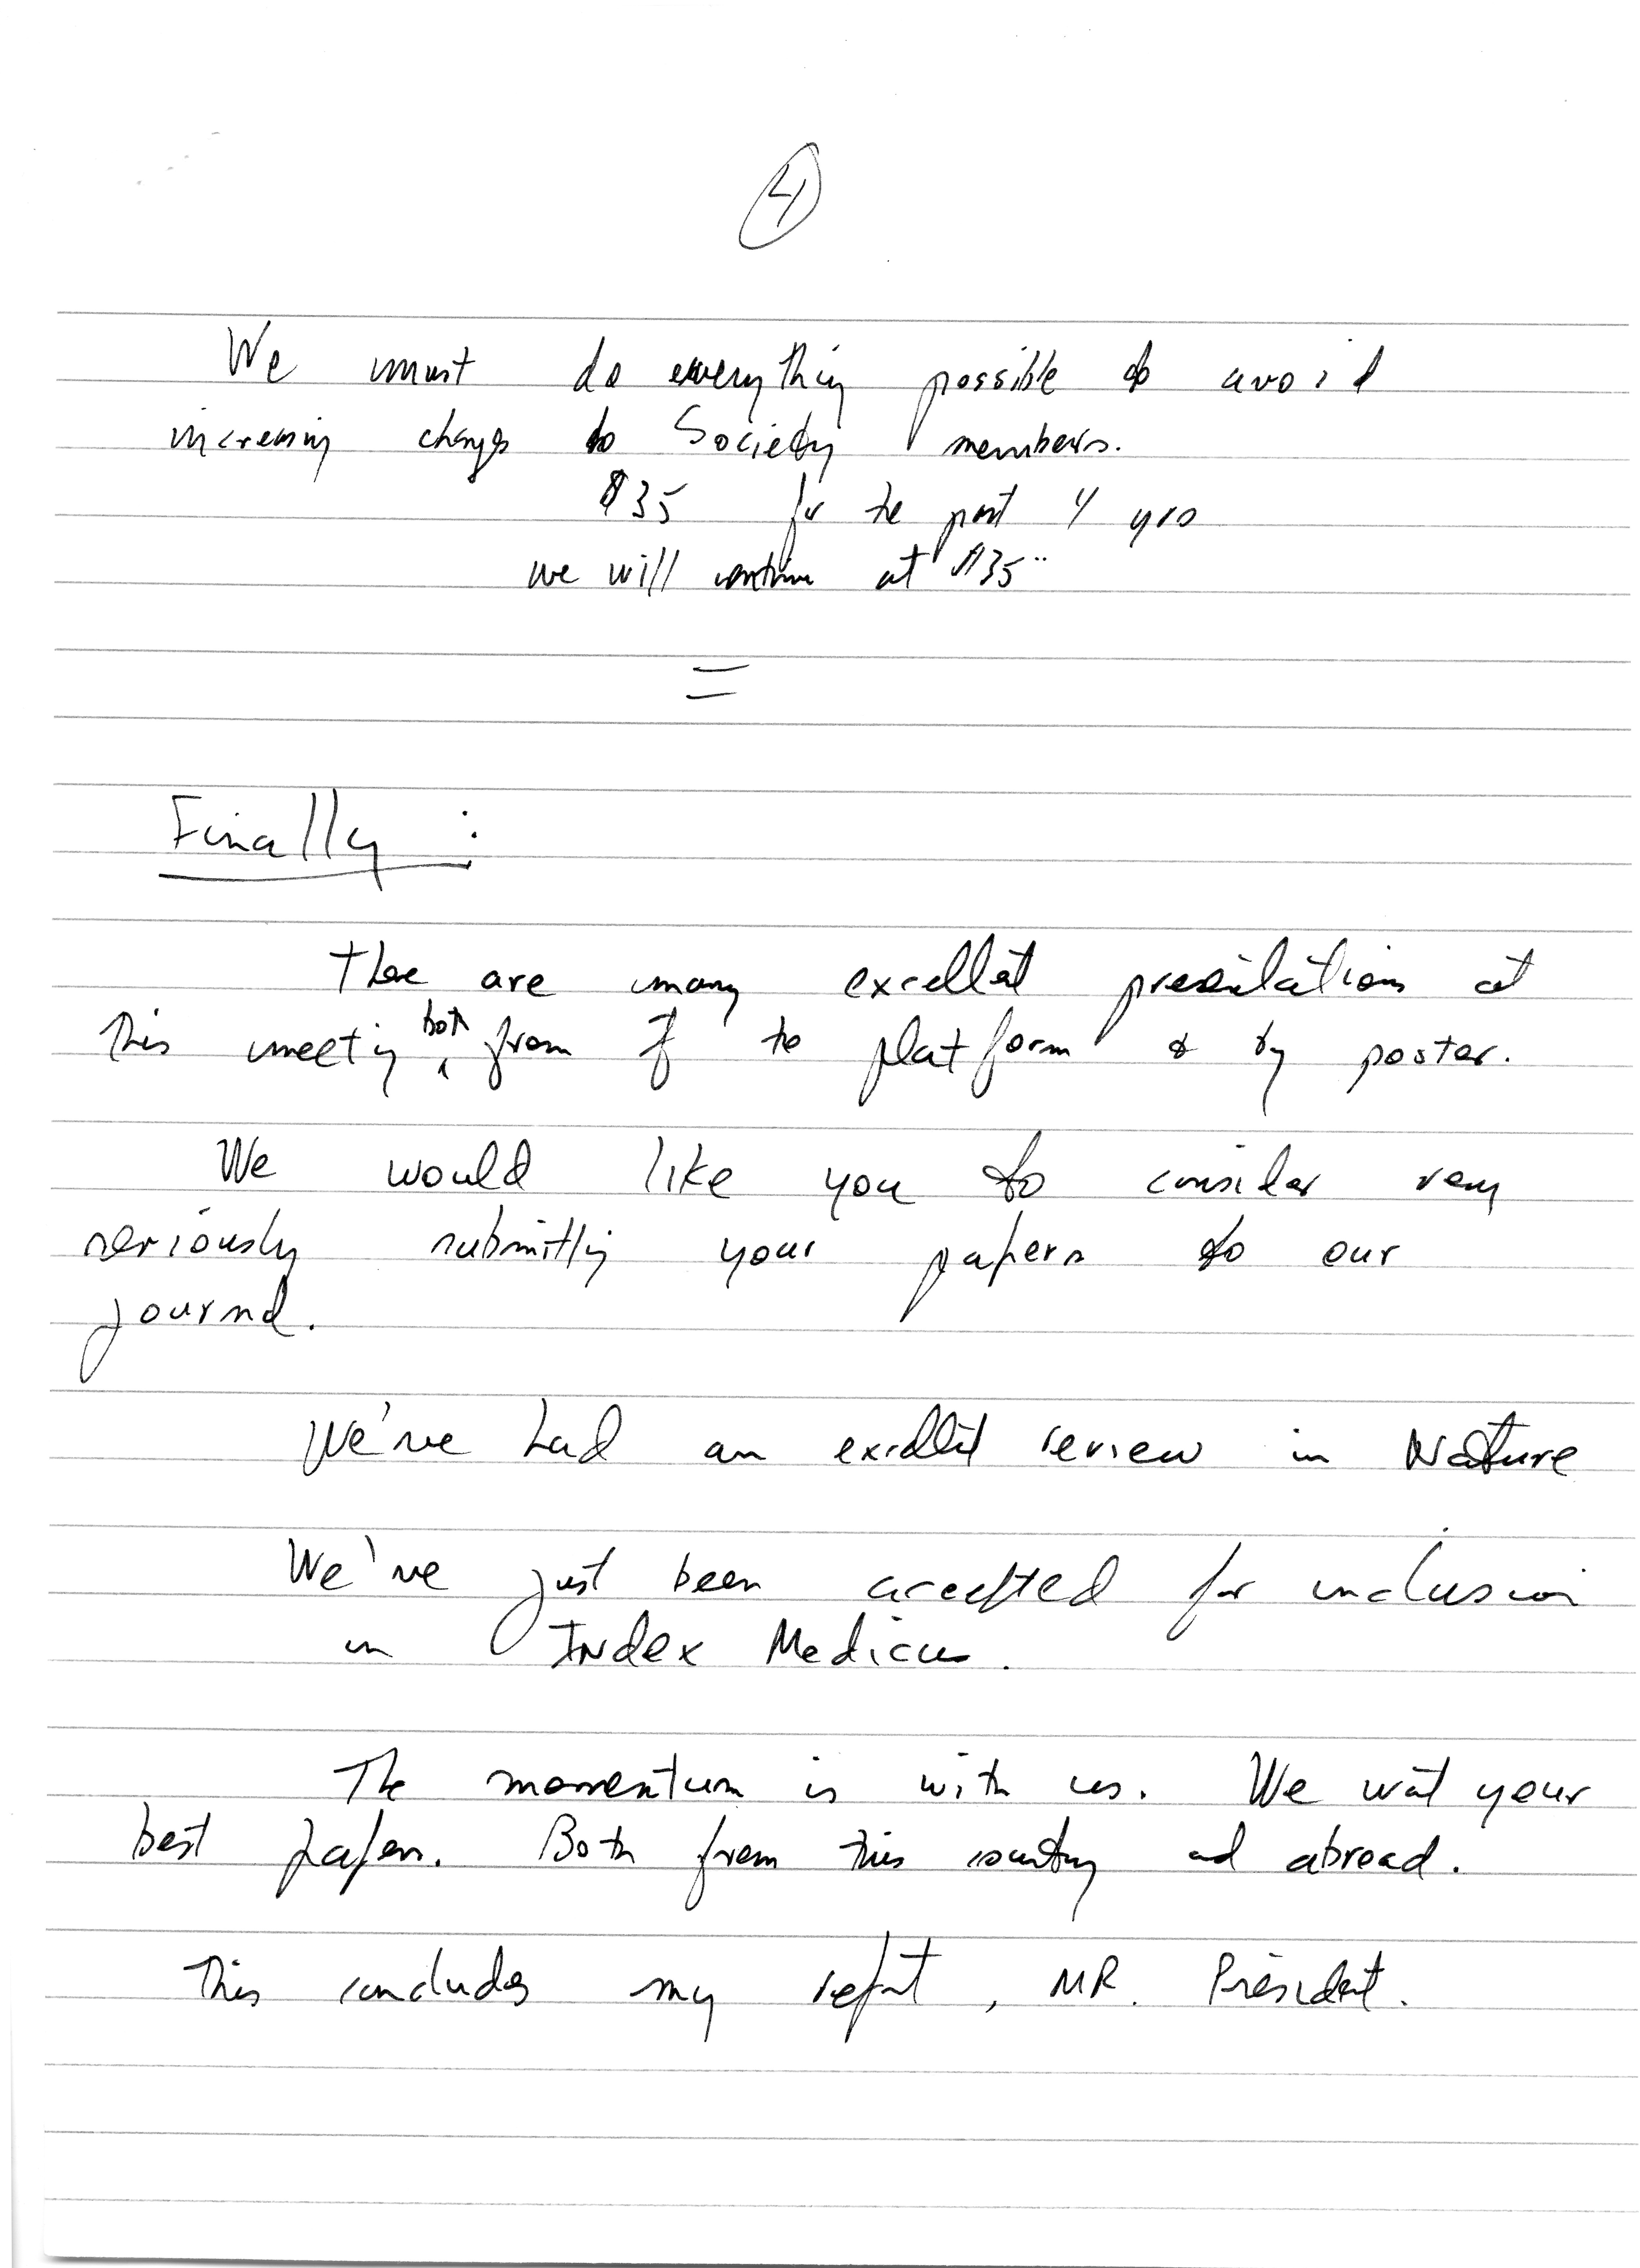 4
We must do everything possible to avoid
increasing charges to Society members.
$35 for the past 4 yrs
we will continue at $35
=
Finally :
There are many excellent presentations at
this meeting both from the platform & by poster.
We would like you to consider very
seriously submitting your papers to our
journal.
We've had an excellent review in Nature
We've just been accepted for inclusion
in Index Medicus.
The momentum is with us. We want your
best papers. Both from this country and abroad.
This concludes my report, MR. President.